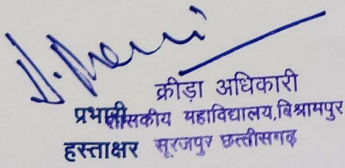 क्रीड़ा अधिकारी
प्रभारी शासकीय महाविद्यालय,बिश्रामपुर
हस्ताक्षर सूरजपुर छत्तीसगढ़